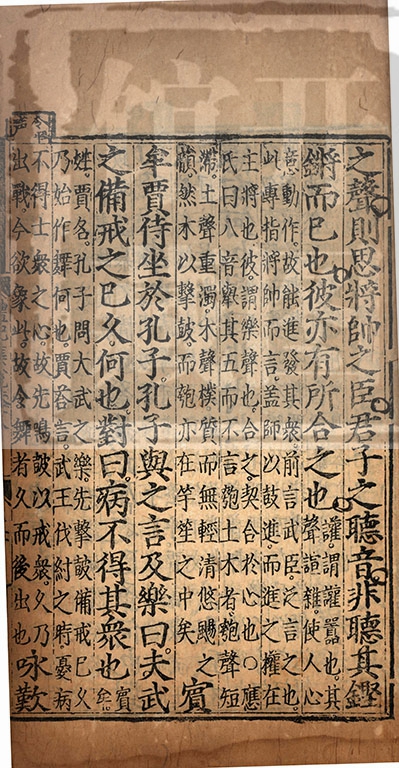 之聲則思將帥之臣君子之聽音非聽其鏗
鏘而巳也彼亦有所合之也
讙謂讙囂也其
聲諠雜使人心
意動作故能進發其衆前言武臣泛言之也
此專指將帥而言盖師以鼓進而進之權在
主將也彼謂樂聲也合之契合於心也○應
氏曰八音舉其五而不言匏土木者匏聲短
滯土聲重濁木聲樸質而無輕清悠颺之
韻然木以擊鼓而匏亦在竽笙之中矣
賓
牟賈待坐於孔子孔子與之言及樂曰夫武
之備戒之巳久何也對曰病不得其衆也
賓
牟
姓賈名孔子問大武之樂先擊鼓備戒巳久
乃始作舞何也賈荅言武王伐紂之時憂病
不得士衆之心故先鳴鼓以戒衆久乃
出戰今欲象此故令舞者久而後出也
咏歎